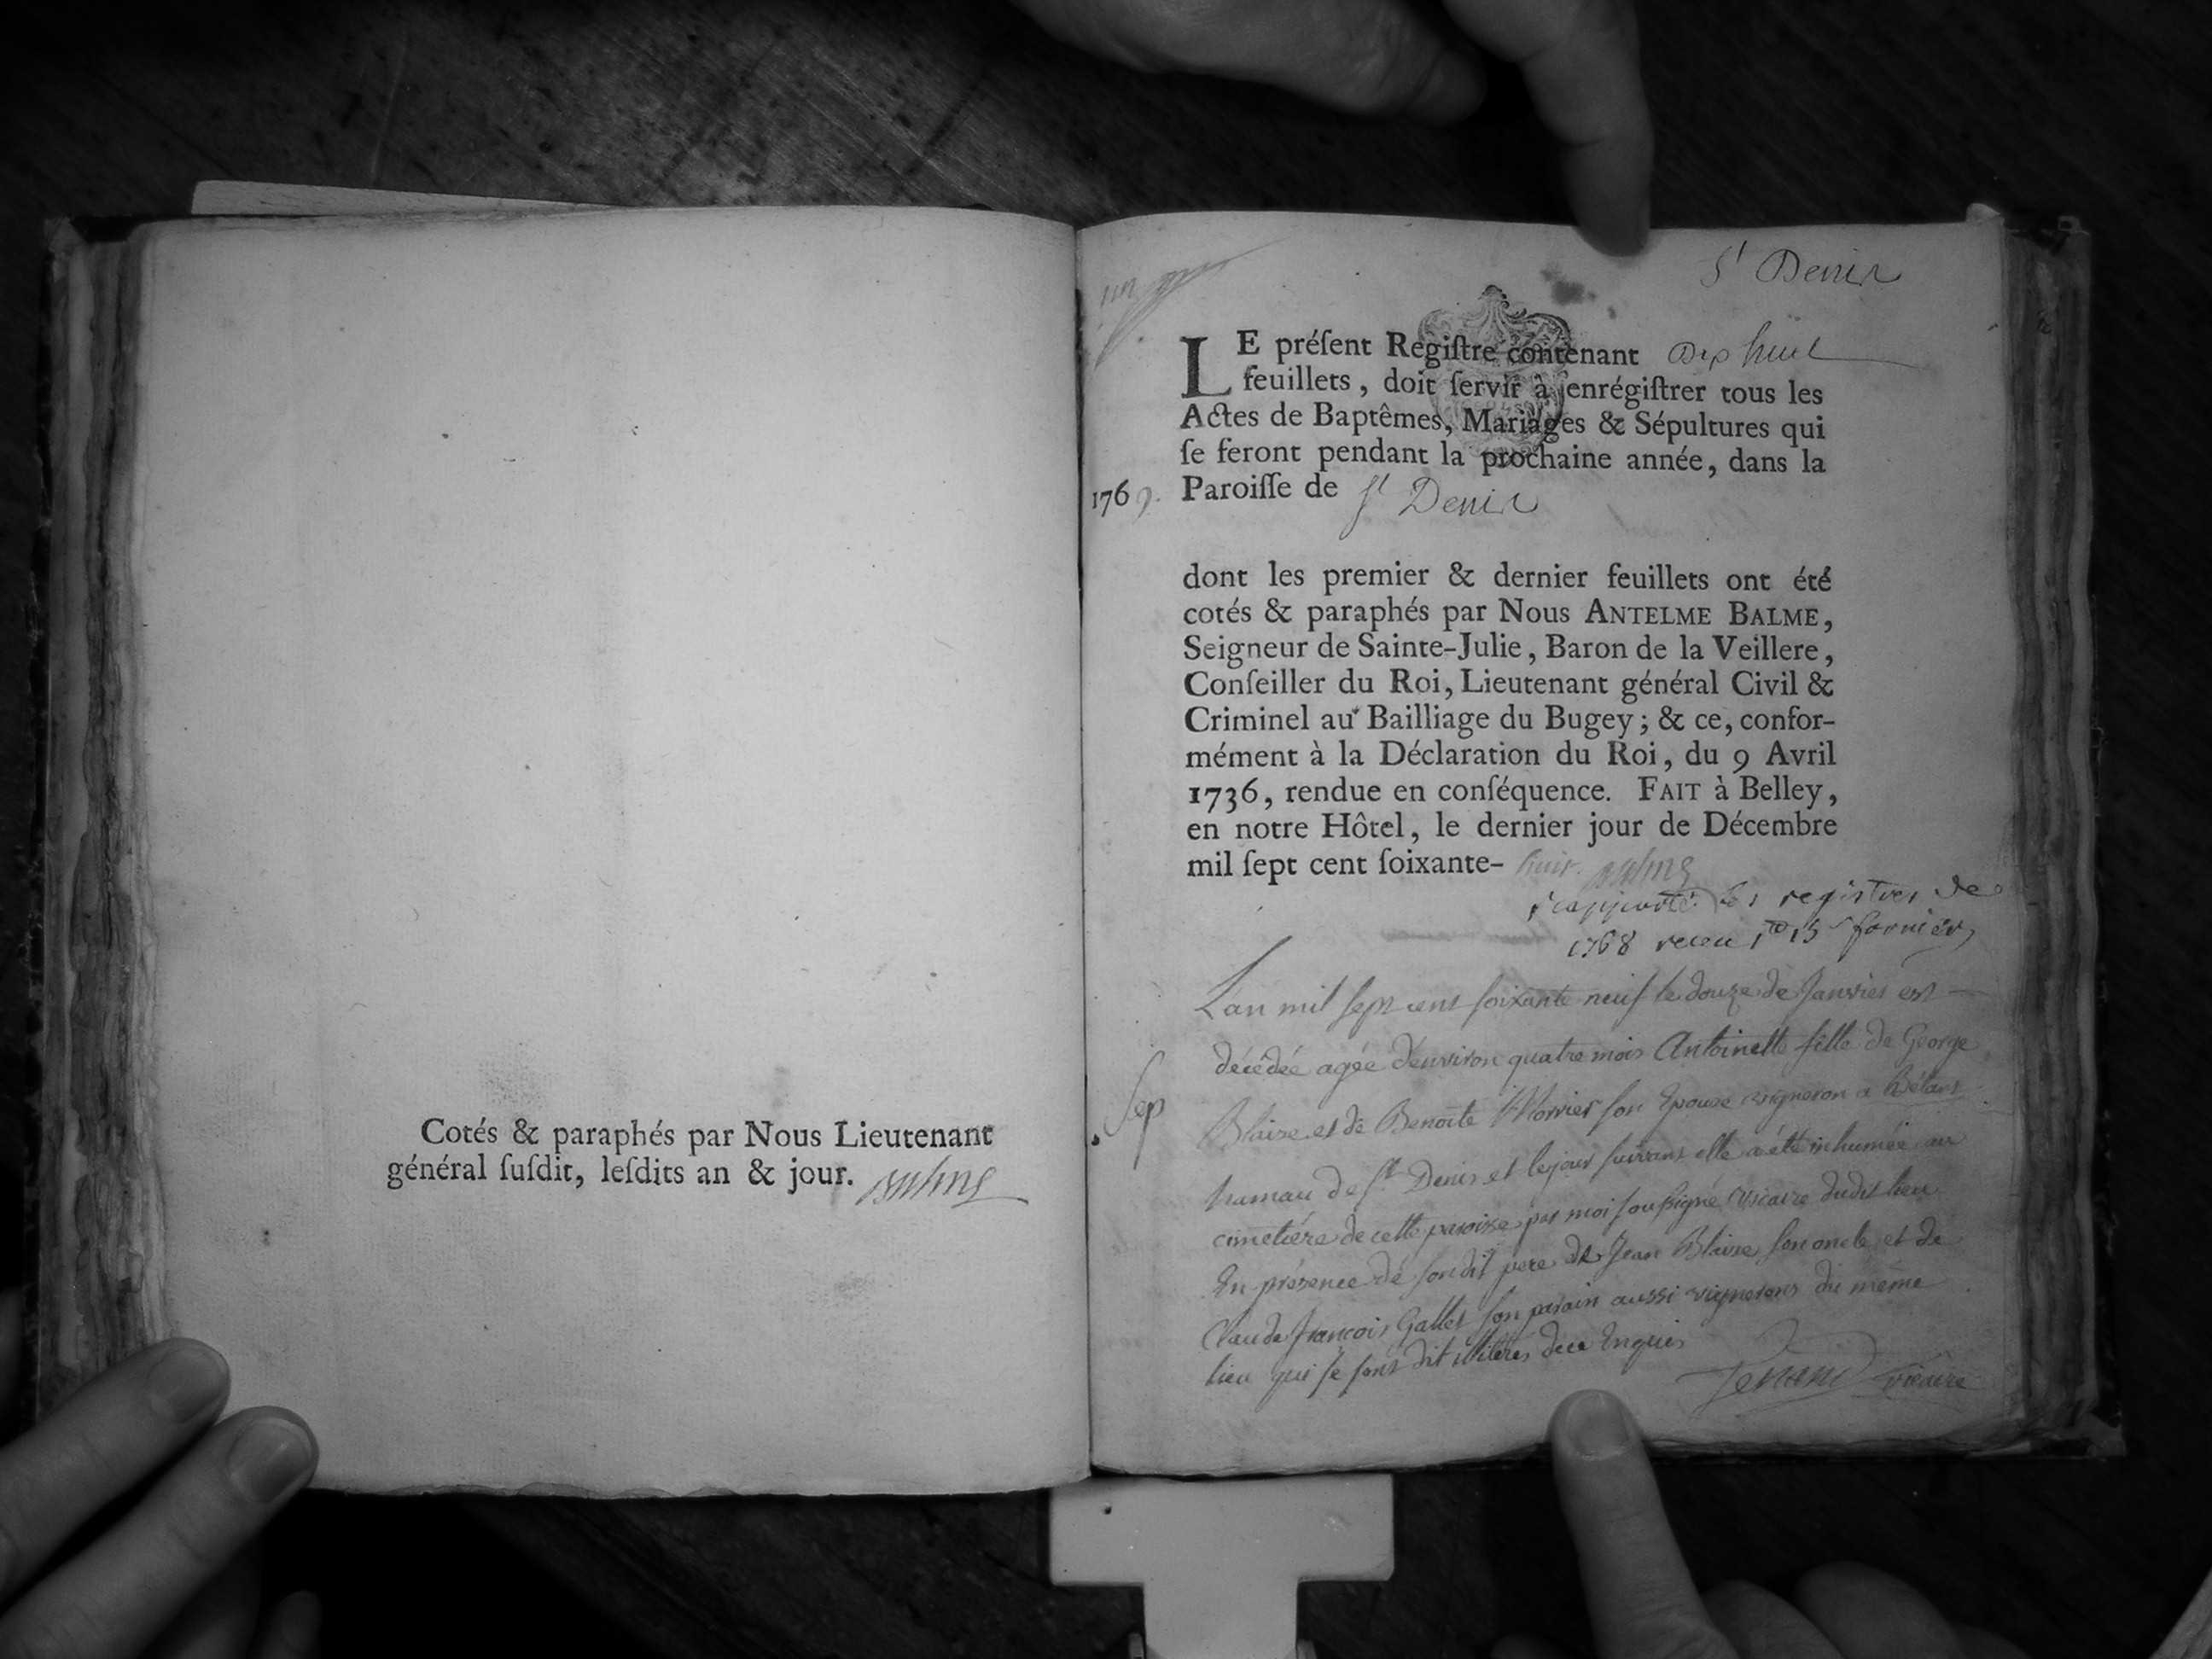 Cotés & paraphés par Nous Lieutenant
général ſuſdit, leſdits an & jour. Balme
St Denis
LE préſent Regiſtre contenant Dix huit
feuillets, doit ſervir à enrégiſtrer tous les
Actes de Baptêmes, Mariages & Sépultures qui
ſe feront pendant la prochaine année, dans la
1769. Paroiſſe de St Denis
dont les premier & dernier feuillets ont été
cotés & paraphés par Nous ANTELME BALME,
Seigneur de Sainte-Julie, Baron de la Veillere,
Conſeiller du Roi, Lieutenant général Civil &
Criminel au Bailliage du Bugey; & ce, confor-
mément à la Déclaration du Roi, du 9 Avril
1736, rendue en conſéquence. FAIT à Belley,
en notre Hôtel, le dernier jour de Décembre
mil ſept cent ſoixante- huit. Balme
rapporté les registres de
1768 receu 15 fornier
L'an mil sept cent soixante neuf le douze de Janvier est
décédée agée d'environ quatre mois Antoinette fille de George
Sep
Blaise et de Benoite Morrier son Epouse vigneron a
hamau de St Denis et le jour suivant elle a été inhumée au
cimetière de cette paroisse par moi soussigné vicaire dudit lieu
En présence de son dit pere de Jean Blaise son oncle et de
Claude François Gallet son parain aussi vignerons du même
lieu qui se sont dit illiteres de ce Enquis
vicaire